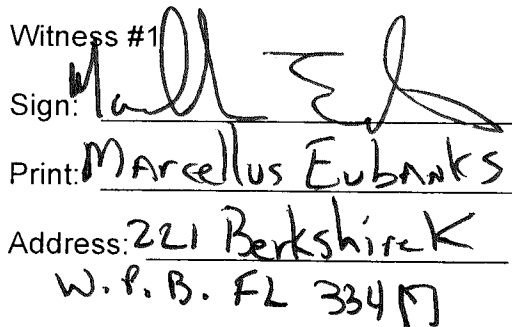 Witness #1
Sign:
Print: Marcellus Eubanks
Address: 221 Berkshire K
W. P. B. FL 33417